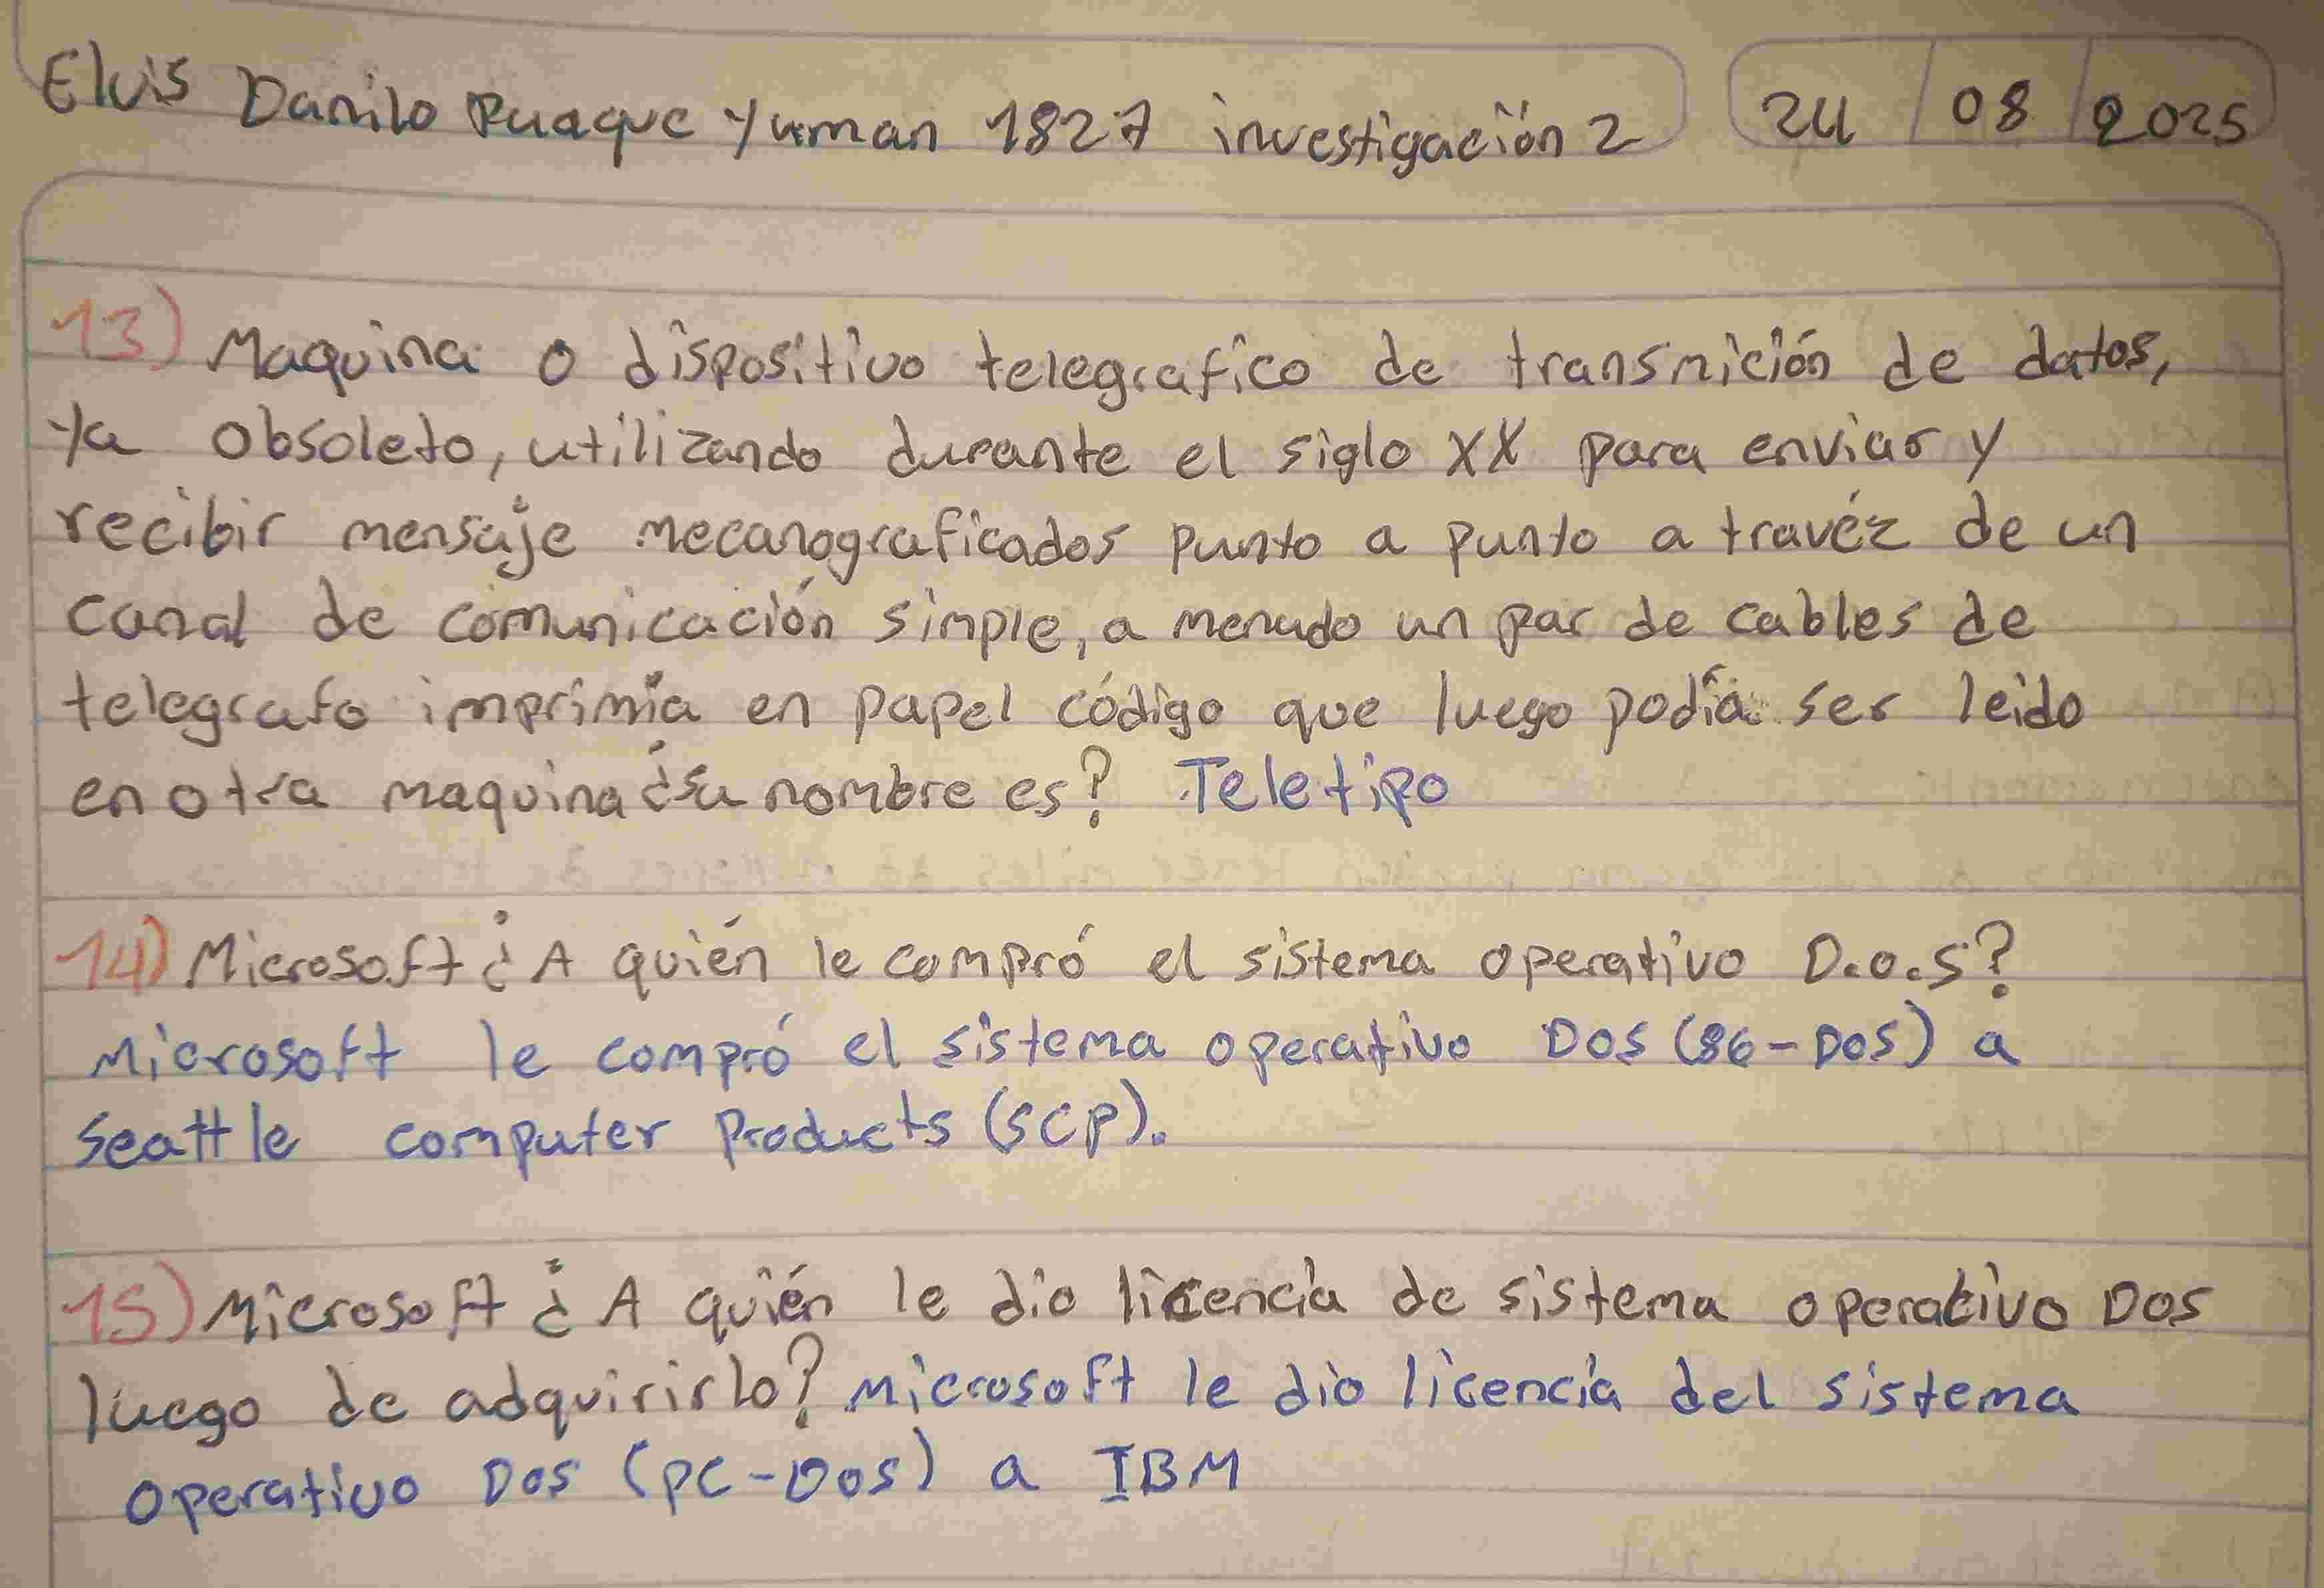 Elvis Danilo Ruaque Yuman 1827 investigación 2 24 / 08 / 2025
13) Maquina o dispositivo telegrafico de transmición de datos,
ya obsoleto, utilizando durante el siglo XX para enviar y
recibir mensaje mecanograficados punto a punto a travéz de un
canal de comunicación simple, a menudo un par de cables de
telegrafo imprimía en papel código que luego podía ser leido
en otra maquina ¿su nombre es? Teletipo
14) Microsoft ¿A quién le compró el sistema operativo D.O.S?
Microsoft le compró el sistema operativo DOS (86-DOS) a
Seattle computer Products (SCP).
15) Microsoft ¿A quién le dio licencia de sistema operativo DOS
luego de adquirirlo? Microsoft le dio licencia del sistema
operativo DOS (PC-DOS) a IBM